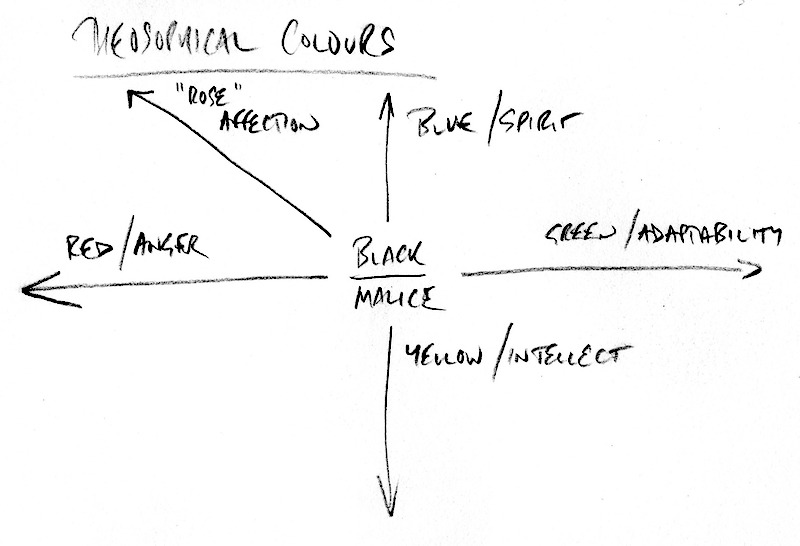 THEOSOPHICAL COLOURS
"ROSE"
AFFECTION
BLUE/SPIRIT
RED/ANGER
GREEN/ADAPTABILITY
BLACK
MALICE
YELLOW/INTELLECT